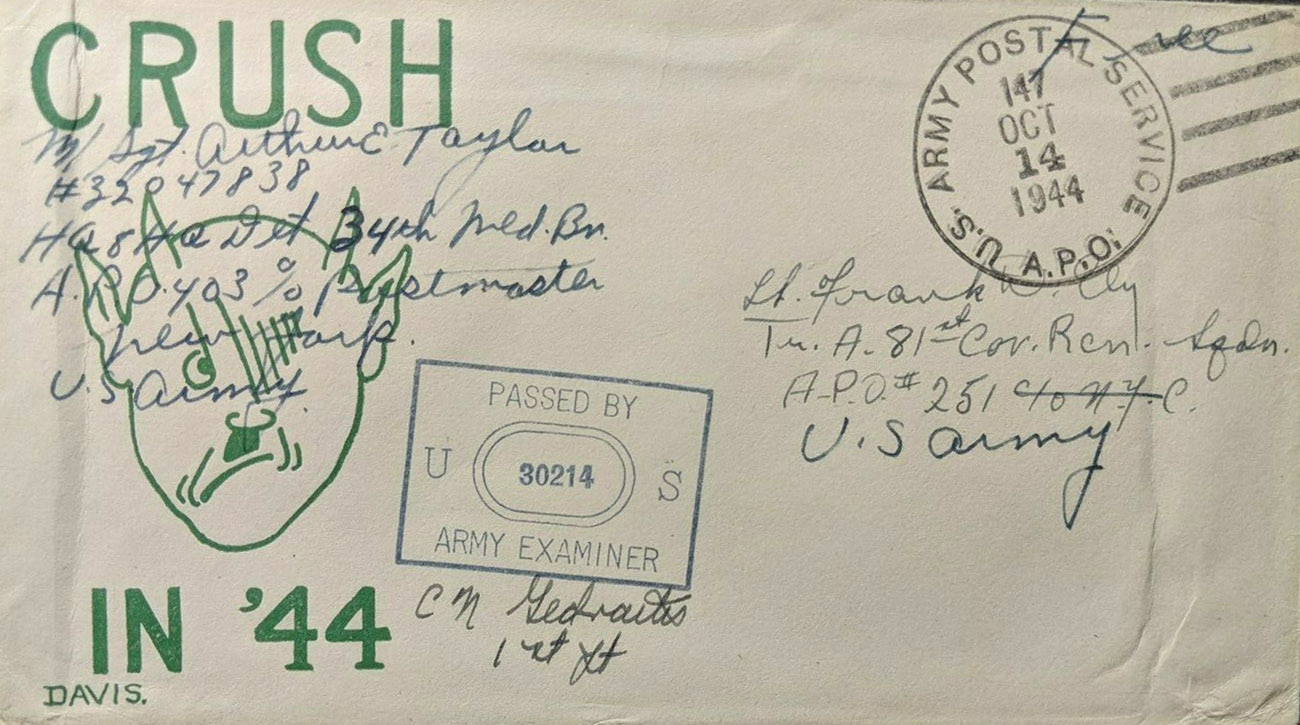 CRUSH
M/Sgt. Arthur E. Taylor
#32047838
HQ & HQ Det 34th Med. Bn.
A.P.O. 403 % Postmaster
New York.
U.S Army.
IN '44
DAVIS.
Free
U.S. ARMY POSTAL SERVICE
147
OCT
14
1944
A.P.O.
Lt. Frank Ely
Tr. A. 81st Cav. Rcn. Sqdn.
A.P.O. # 251 c/o N.Y.C.
U.S Army
PASSED BY
U 30214 S
ARMY EXAMINER
C N Gedraitis
1st Lt